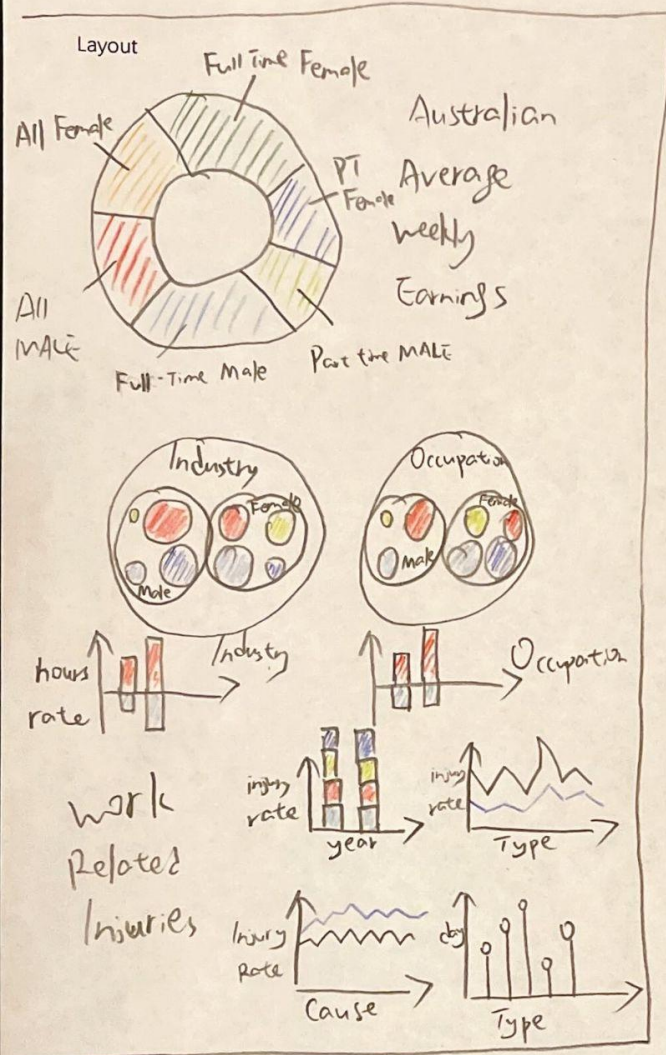 Layout
Full Time Female
All Female
Australian
PT
Female
Average
Weekly
Earnings
All
MALE
Full-Time Male
Part time MALE
Industry
Female
Male
Occupation
Female
Male
hours
rate
Industry
Occupation
injury
rate
year
injury
rate
Type
Work
Related
Injuries
Injury
Rate
Cause
day
Type